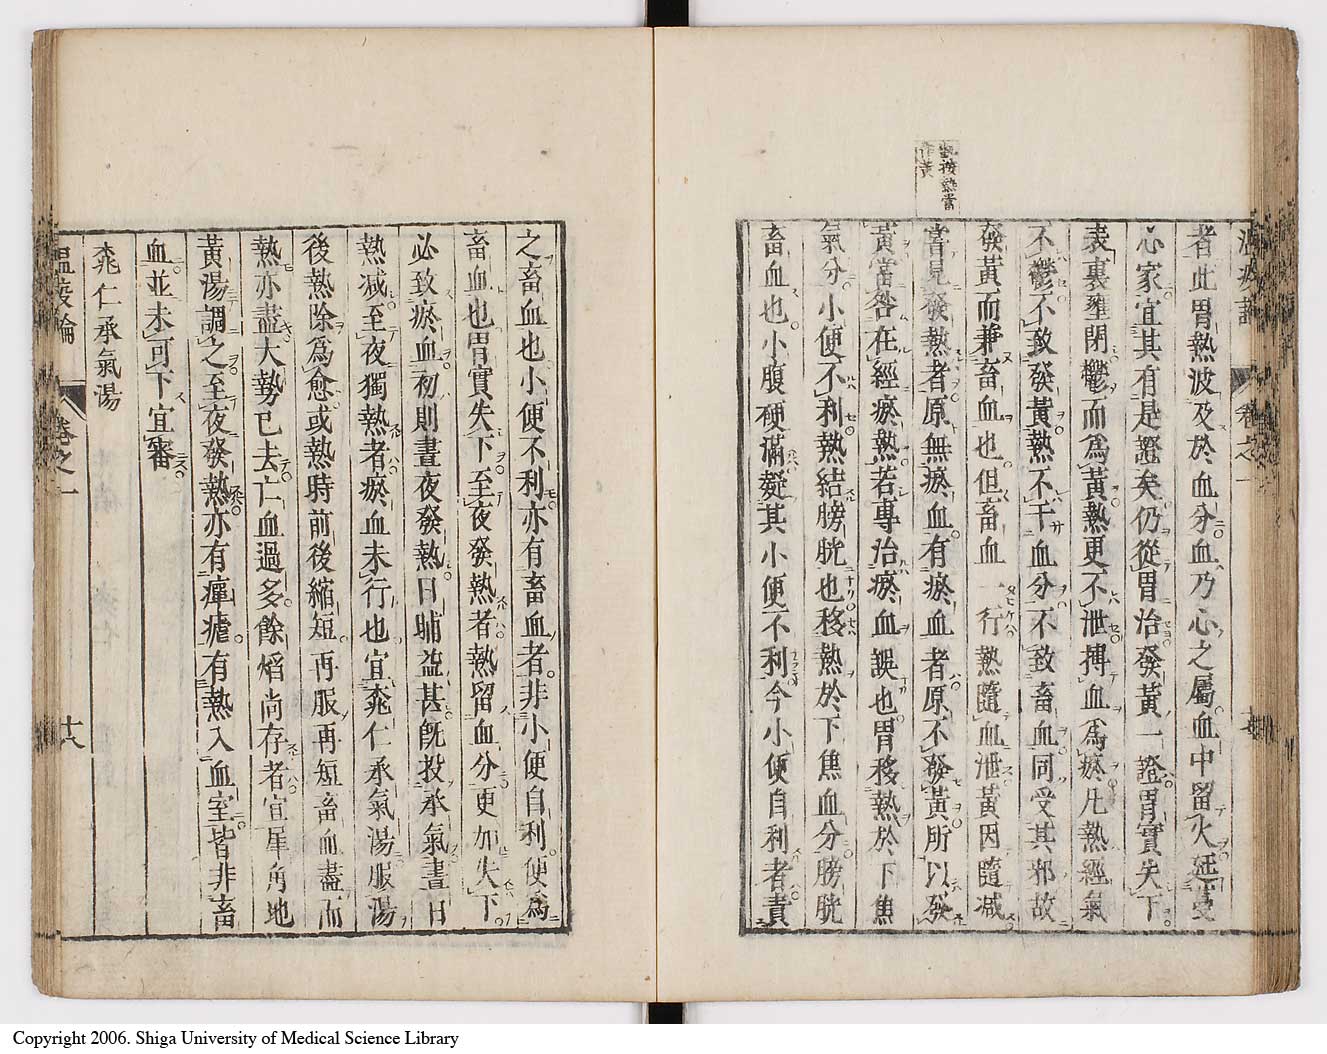 者此胃熱波及於血分血乃心之屬血中留火延蔓
心家宜其有是證矣仍從胃治發黃一證胃實失下
表裏壅閉鬱而爲黃熱更不泄搏血爲瘀凡熱經氣
不鬱不致發黃熱不干血分不致畜血同受其邪故
發黃而兼畜血也但畜血一行熱隨血泄黃因隨减
當見發熱者原無瘀血有瘀血者原不發黃所以發
黃當咎在經瘀熱若專治瘀血誤也胃移熱於下焦
氣分小便不利熱結膀胱也移熱於下焦血分膀胱
畜血也小腹硬滿疑其小便不利今小便自利者責
之畜血也小便不利亦有畜血者非小便自利便爲
畜血也胃實失下至夜發熱者熱留血分更加失下
必致瘀血初則晝夜發熱日晡益甚旣投承氣晝日
熱减至夜獨熱者瘀血未行也宜桃仁承氣湯服湯
後熱除爲愈或熱時前後縮短再服再短畜血盡而
熱亦盡大勢已去亡血過多餘焰尚存者宜犀角地
黃湯調之至夜發熱亦有癉瘧有熱入血室皆非畜
血並未可下宜審
桃仁承氣湯
溫疫論
卷之一
廿八
Copyright 2006. Shiga University of Medical Science Library